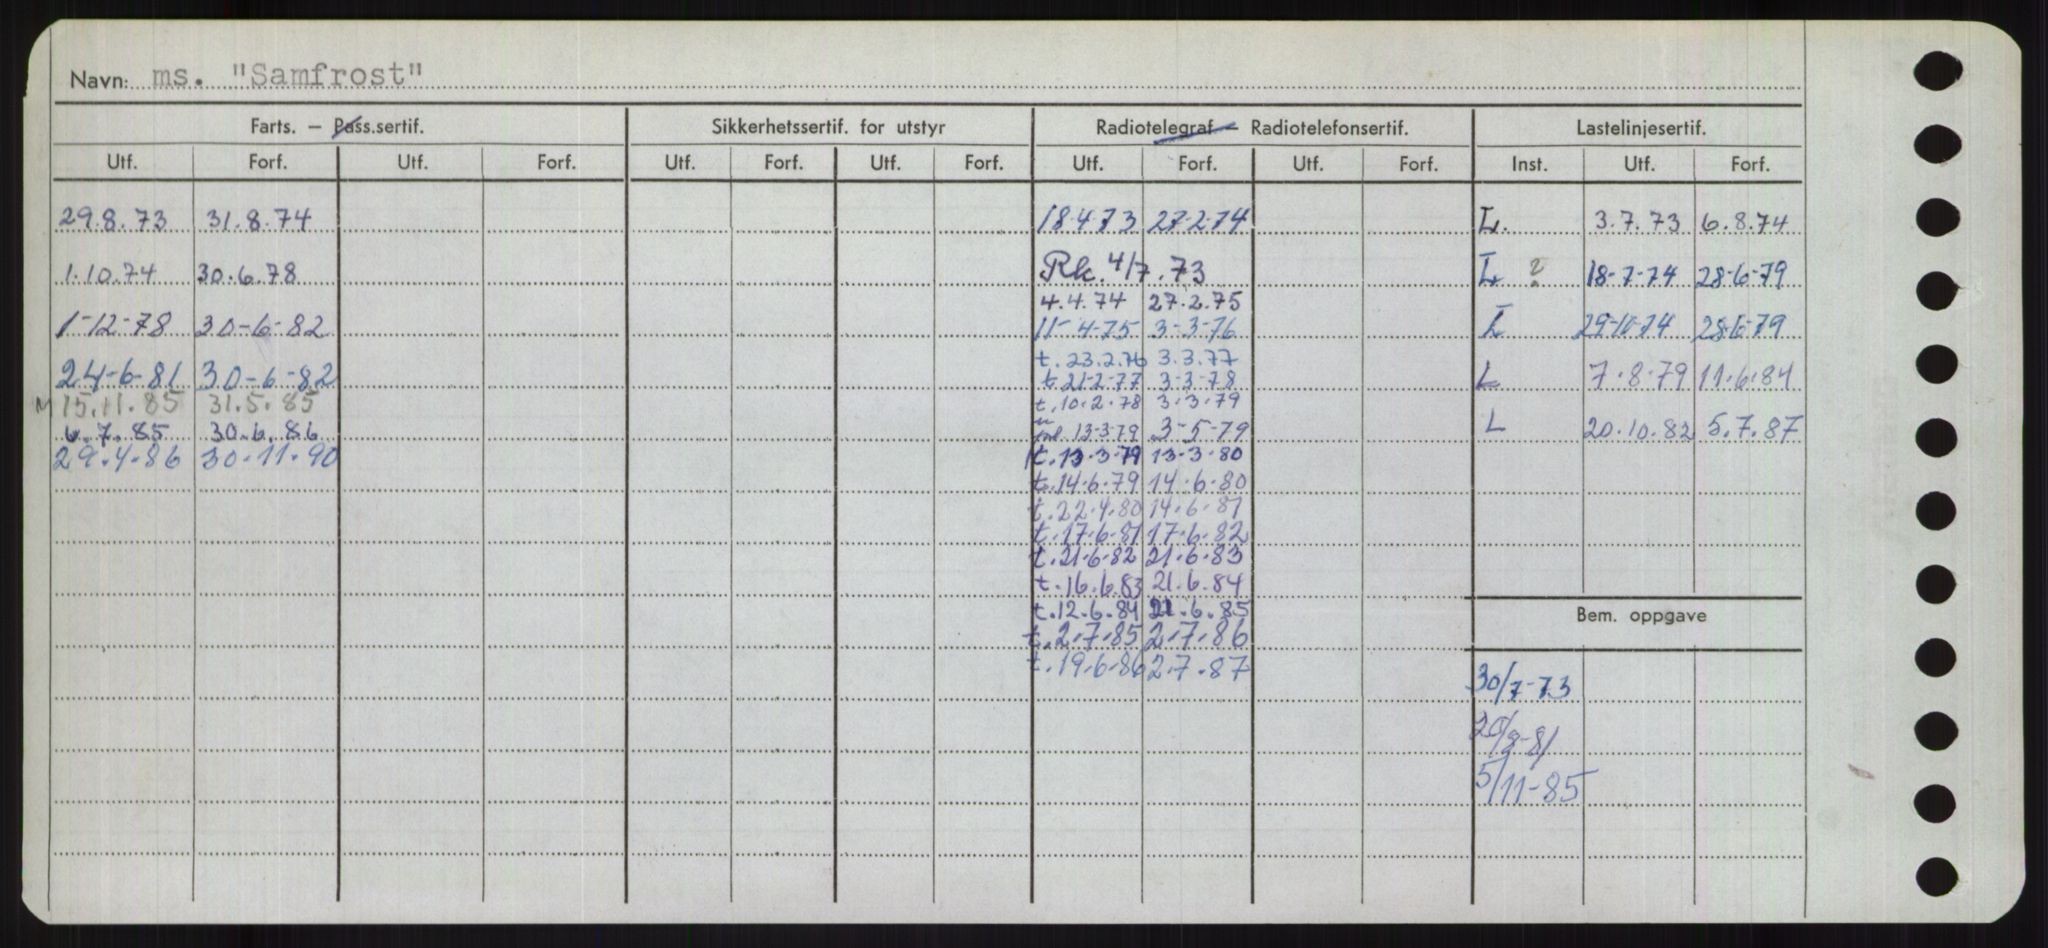 Navn: ms. "Samfrost"
Farts. – Pass.sertif. Sikkerhetssertif. for utstyr Radiotelegraf – Radiotelefonsertif. Lastelinjesertif.
Utf. Forf. Utf. Forf. Utf. Forf. Utf. Forf. Utf. Forf. Utf. Forf. Inst. Utf. Forf.
29.8.73 31.8.74 18-4-73 27-2-74 L. 3.7.73 6.8.74
1.10.74 30.6.78 Rk. 4/7.73 L ? 18-7-74 28-6-79
4.4.74 27.2.75
1-12-78 30-6-82 11-4-75 3-3-76 L 29-10-74 28-6-79
t. 23.2.76 3.3.77
24-6-81 30-6-82 t. 21-2-77 3-3-78 L 7.8.79 11.6.84
M 15.11.85 31.5.85 t. 10.2.78 3.3.79
6.7.85 30.6.86 13-3-79 3-5-79 L 20.10.82 5.7.87
29.4.86 30.11.90 t. 13-3-79 13-3-80
t. 14.6.79 14.6.80
t. 22.4.80 14.6.81
t. 17.6.81 17.6.82
t. 21.6.82 21.6.83
t. 16.6.83 21.6.84
t. 12.6.84 21.6.85
Bem. oppgave
t. 2.7.85 2.7.86
t. 19.6.86 2.7.87
30/7-73
20/8-81
5/11-85